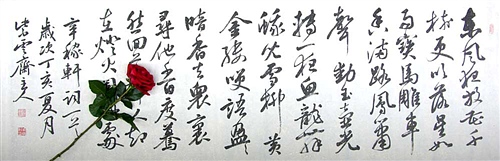 東風夜放花千
樹更吹落星如
雨寶馬雕車
香滿路鳳簫
聲動玉壺光
轉一夜魚龍舞
蛾兒雪柳黃
金縷笑語盈盈
暗香去衆裏
尋他千百度驀
然回却
在燈火處
辛稼軒詞一首
歲次丁亥夏月
雲齋主人